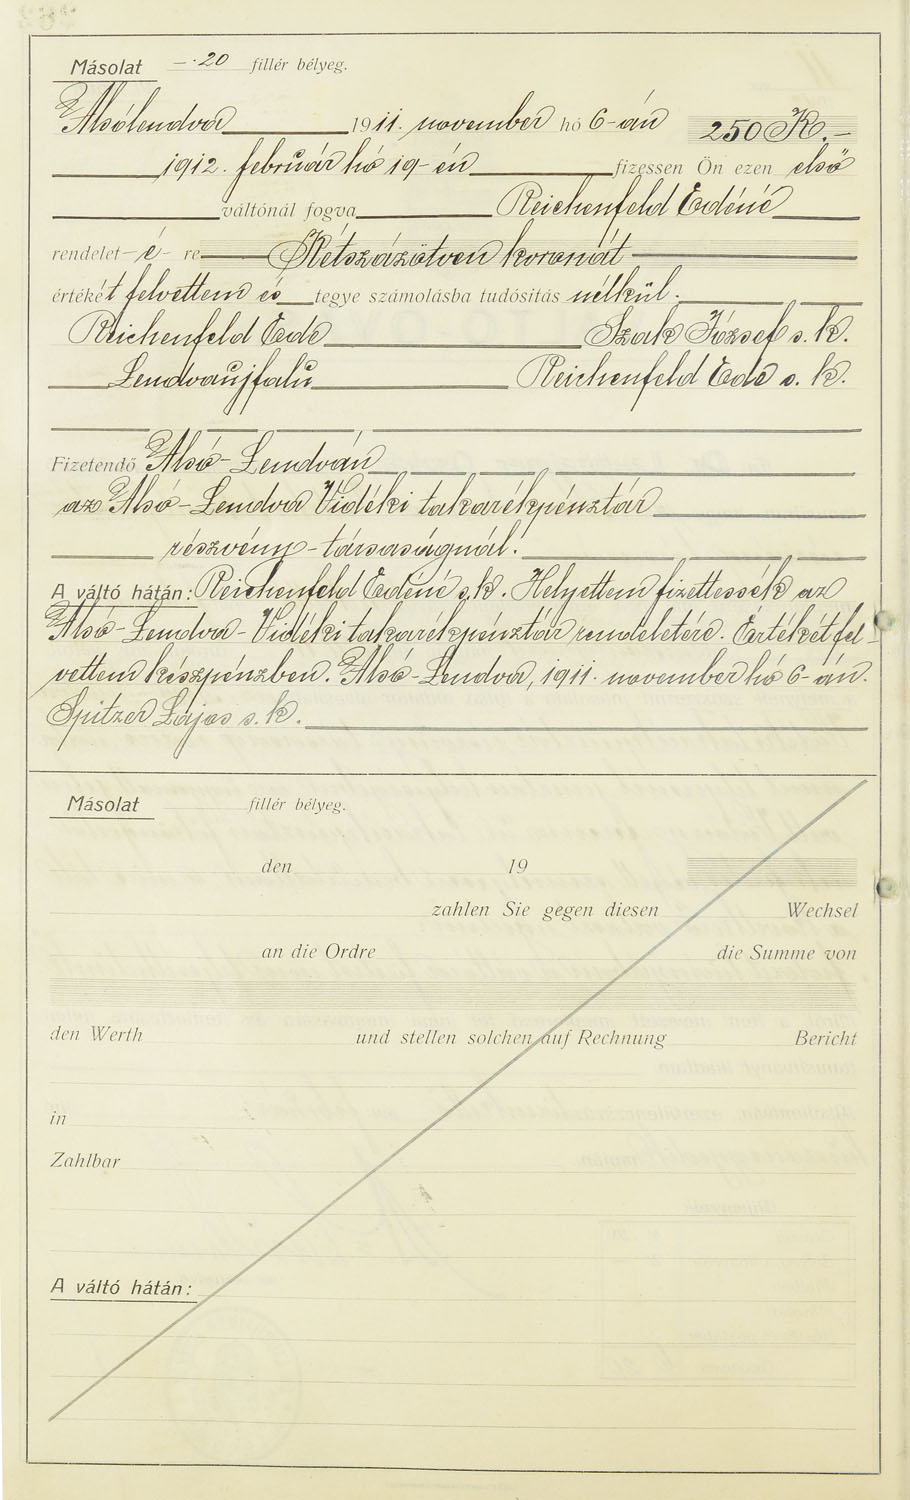 Másolat —·20 fillér bélyeg.
Alsólendva 1911. november hó 6-án 250 K.—
1912. február hó 19-én fizessen Ön ezen első
váltónál fogva Reichenfeld Edéné
rendelet-é-re Kétszázötven koronát
értékét felvettem és tegye számolásba tudósítás nélkül.
Reichenfeld Ede Szak József s. k.
Lendvaujfalu Reichenfeld Ede s. k.
Fizetendő Alsó-Lendván
az Alsó-Lendva Vidéki takarékpénztár
részvény-társaságnál.
A váltó hátán: Reichenfeld Edéné s. k. Helyettem fizettessék az
Alsó-Lendva-Vidéki takarékpénztár rendeletére. Értékét fel-
vettem készpénzben. Alsó-Lendva, 1911. november hó 6-án.
Spitzer Lajos s. k.
Másolat fillér bélyeg.
den 19
zahlen Sie gegen diesen Wechsel
an die Ordre die Summe von
den Werth und stellen solchen auf Rechnung Bericht
in
Zahlbar
A váltó hátán: